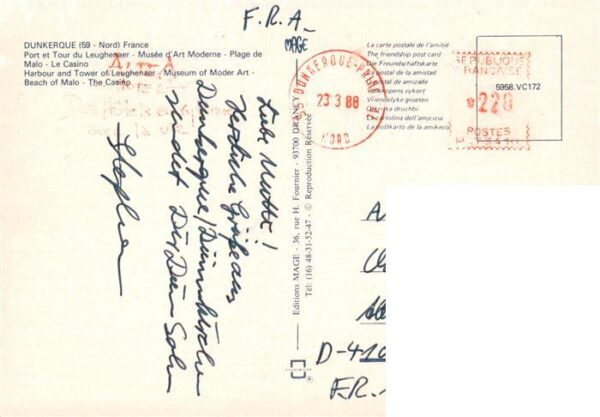 F.R.A
MAGE
DUNKERQUE (59 - Nord) France
Port et Tour du Leughenaer - Musée d'Art Moderne - Plage de
Malo - Le Casino
Harbour and Tower of Leughenaer - Museum of Moder Art -
Beach of Malo - The Casino
La carte postale de l'amitié
The friendship post card
Die Freundschaftskarte
La postal de la amistad
de amizade
Vriendelijke groeten
La cartolina dell'amicizia
La poŝtkarto de la amikeco
DUNKERQUE
23 3 88
NORD
RÉPUBLIQUE
FRANÇAISE
5958.VC172
220
POSTES
Liebe Mutti!
Herzliche Grüße aus
Dunkerque/Dünnkirchen
sendet Dir Dein Sohn
Stephan
Editions MAGE - 36, rue H. Fournier - 93700 DRANCY
Tél: (16) 48-31-52-47 - © Reproduction Réservée
D-410
F.R.